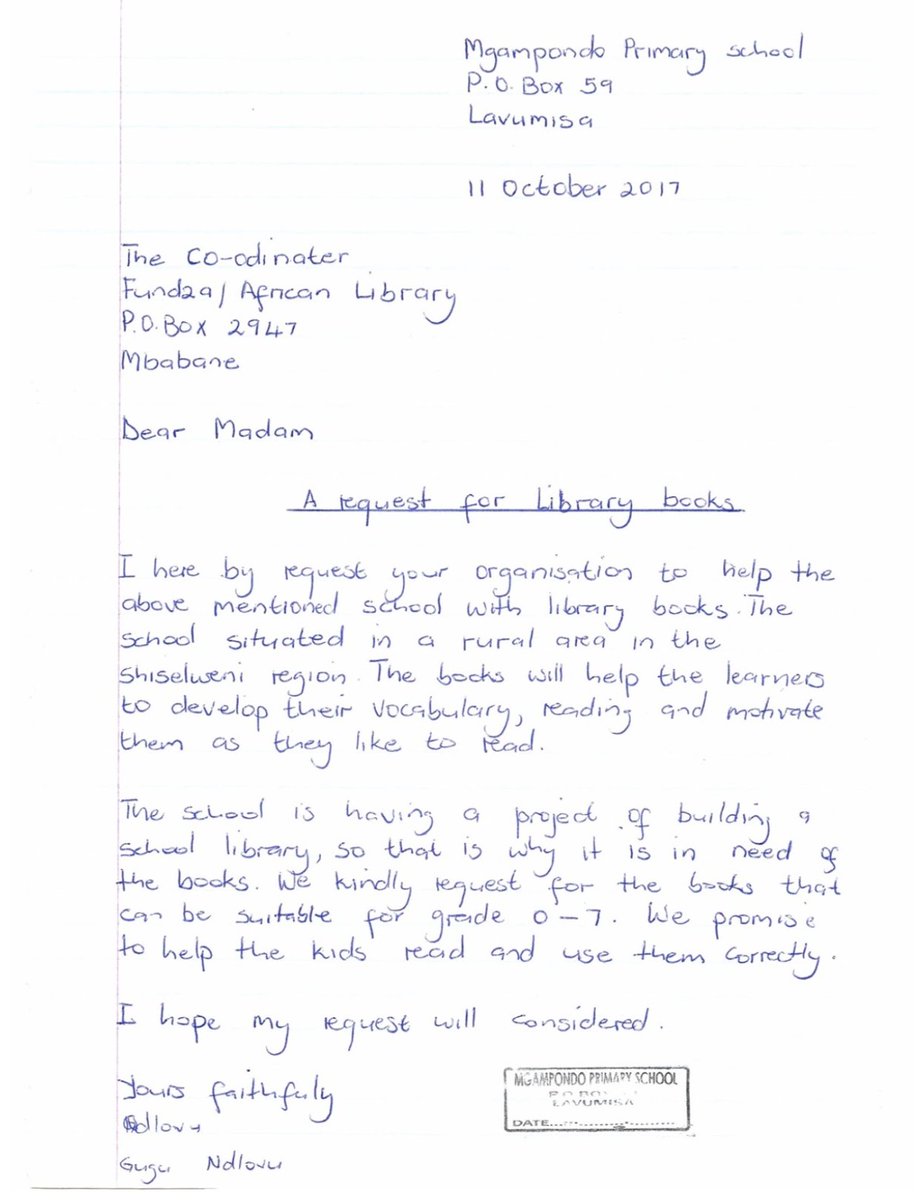 Mgampondo Primary school
P.O. Box 59
Lavumisa
11 October 2017
The Co-odinater
Fundza/ African Library
P.O. Box 2947
Mbabane
Dear Madam
A request for Library books
I here by request your organisation to help the
above mentioned school with library books. The
school situated in a rural area in the
Shiselweni region. The books will help the learners
to develop their vocabulary, reading and motivate
them as they like to read.
The school is having a project of building a
school library, so that is why it is in need of
the books. We kindly request for the books that
can be suitable for grade 0 – 7. We promise
to help the kids read and use them correctly.
I hope my request will considered.
Yours faithfuly
Ndlovu
Gugu Ndlovu
MGAMPONDO PRIMARY SCHOOL
P.O. BO
LAVUMISA
DATE..............................